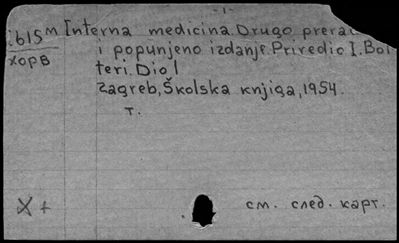 - 1 -
615 м Interna medicina. Drugo prerad
хорв i popunjeno izdanje. Priredio I. Bot
teri. Dio I
Zagreb, Školska knjiga, 1954.
т.
X + см. след. карт.